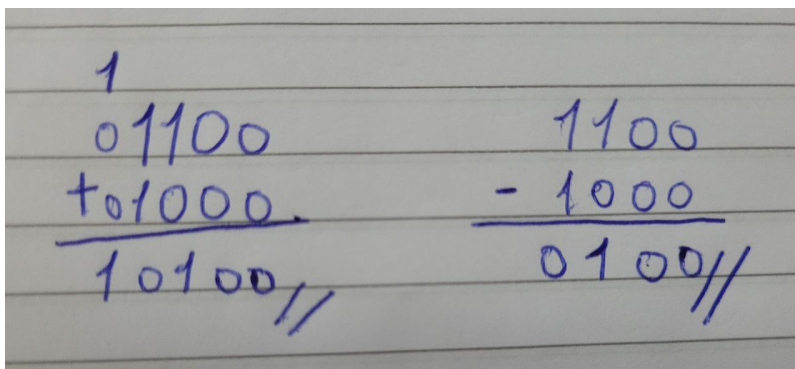 1
01100
+01000
10100//
1100
- 1000
0100//